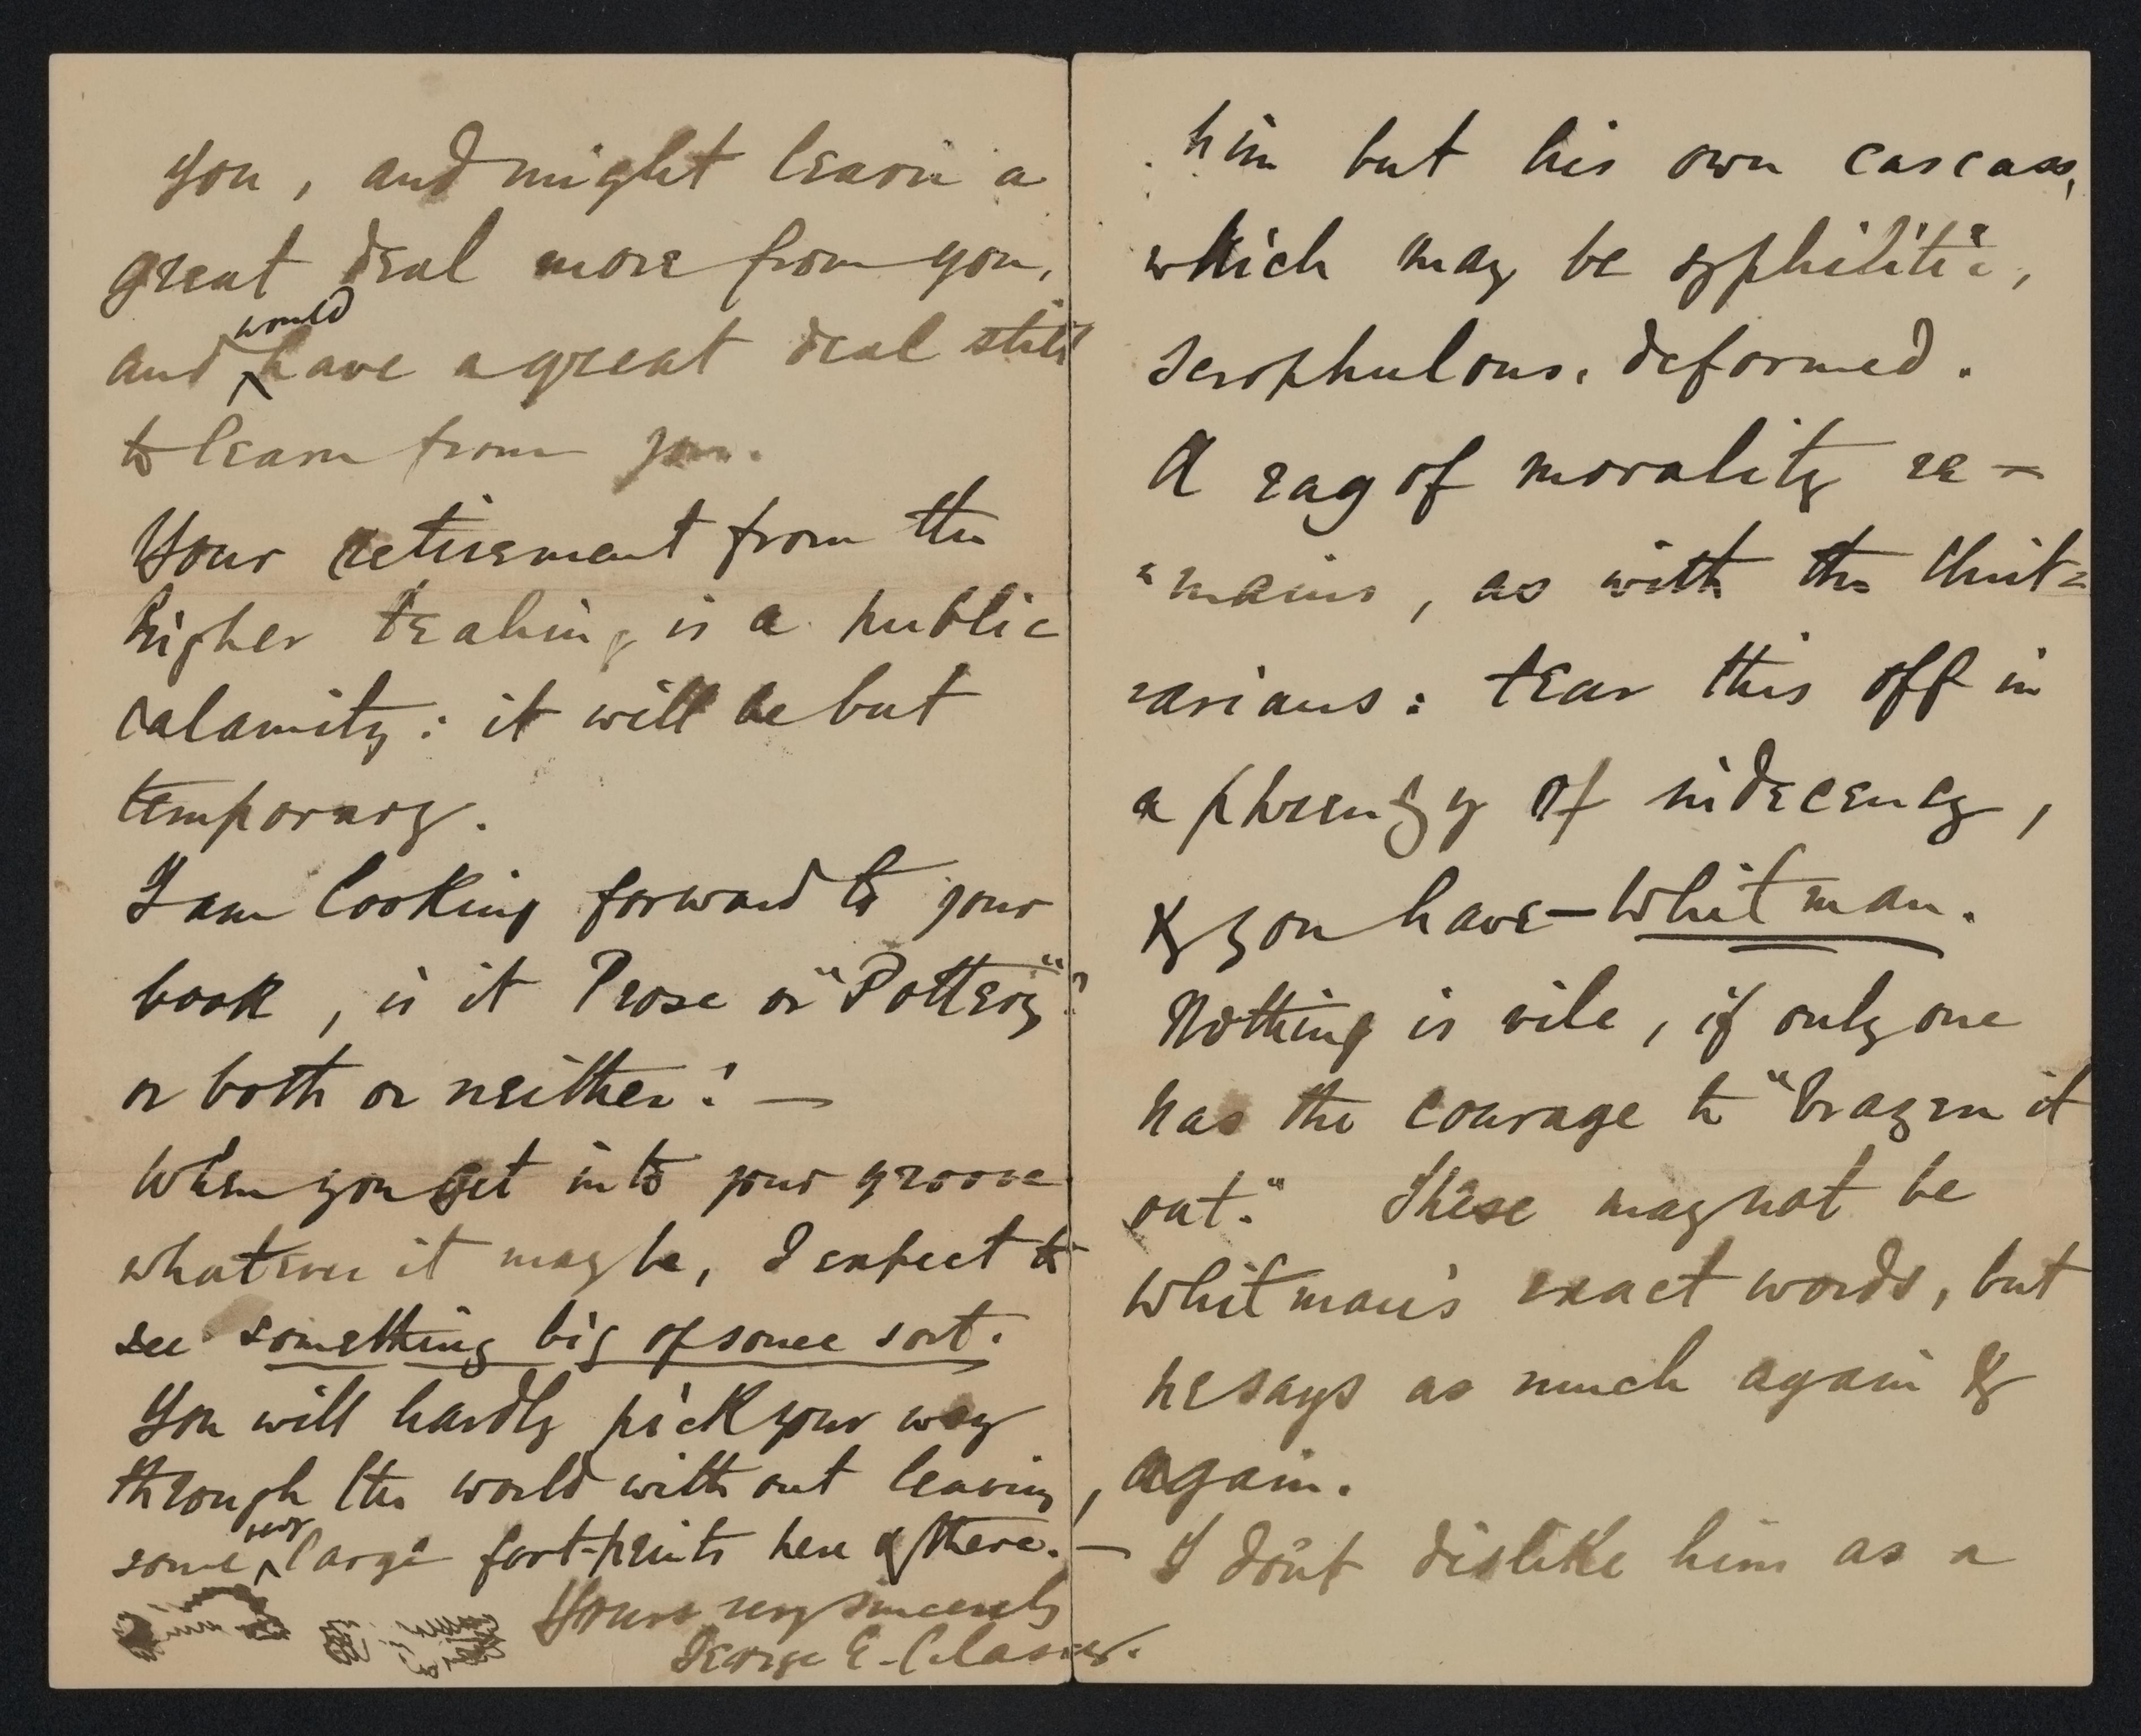 you, and might learn a
great deal more from you,
and would have a great deal still
to learn from you.
Your retirement from the
higher teaching is a public
calamity: it will be but
temporary.
I am looking forward to your
book, is it Prose or "Pottery"?
or both or neither? —
When you get into your groove
whatever it may be, I expect to
see something big of some sort.
You will hardly pick your way
through the world without leaving
some very large foot-prints here & there. —
Yours very sincerely
George E.
him but his own carcass,
which may be syphilitic,
scrophulous, deformed.
A rag of morality re-
"mains, as with the Unit=
=arians: tear this off in
a phrenzy of indecency,
& you have — Whitman.
Nothing is vile, if only one
has the courage to "brazen it
out." These may not be
Whitman's exact words, but
he says as much again &
again.
I don't dislike him as a